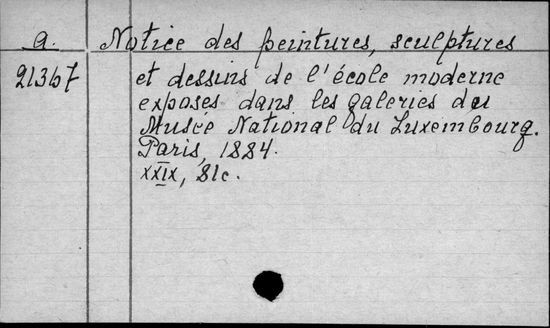 a. Notice des peintures, sculptures
21367 et dessins de l'école moderne
exposés dans les galeries du
Musée National du Luxembourg.
Paris, 1884.
XXIX, 81c.